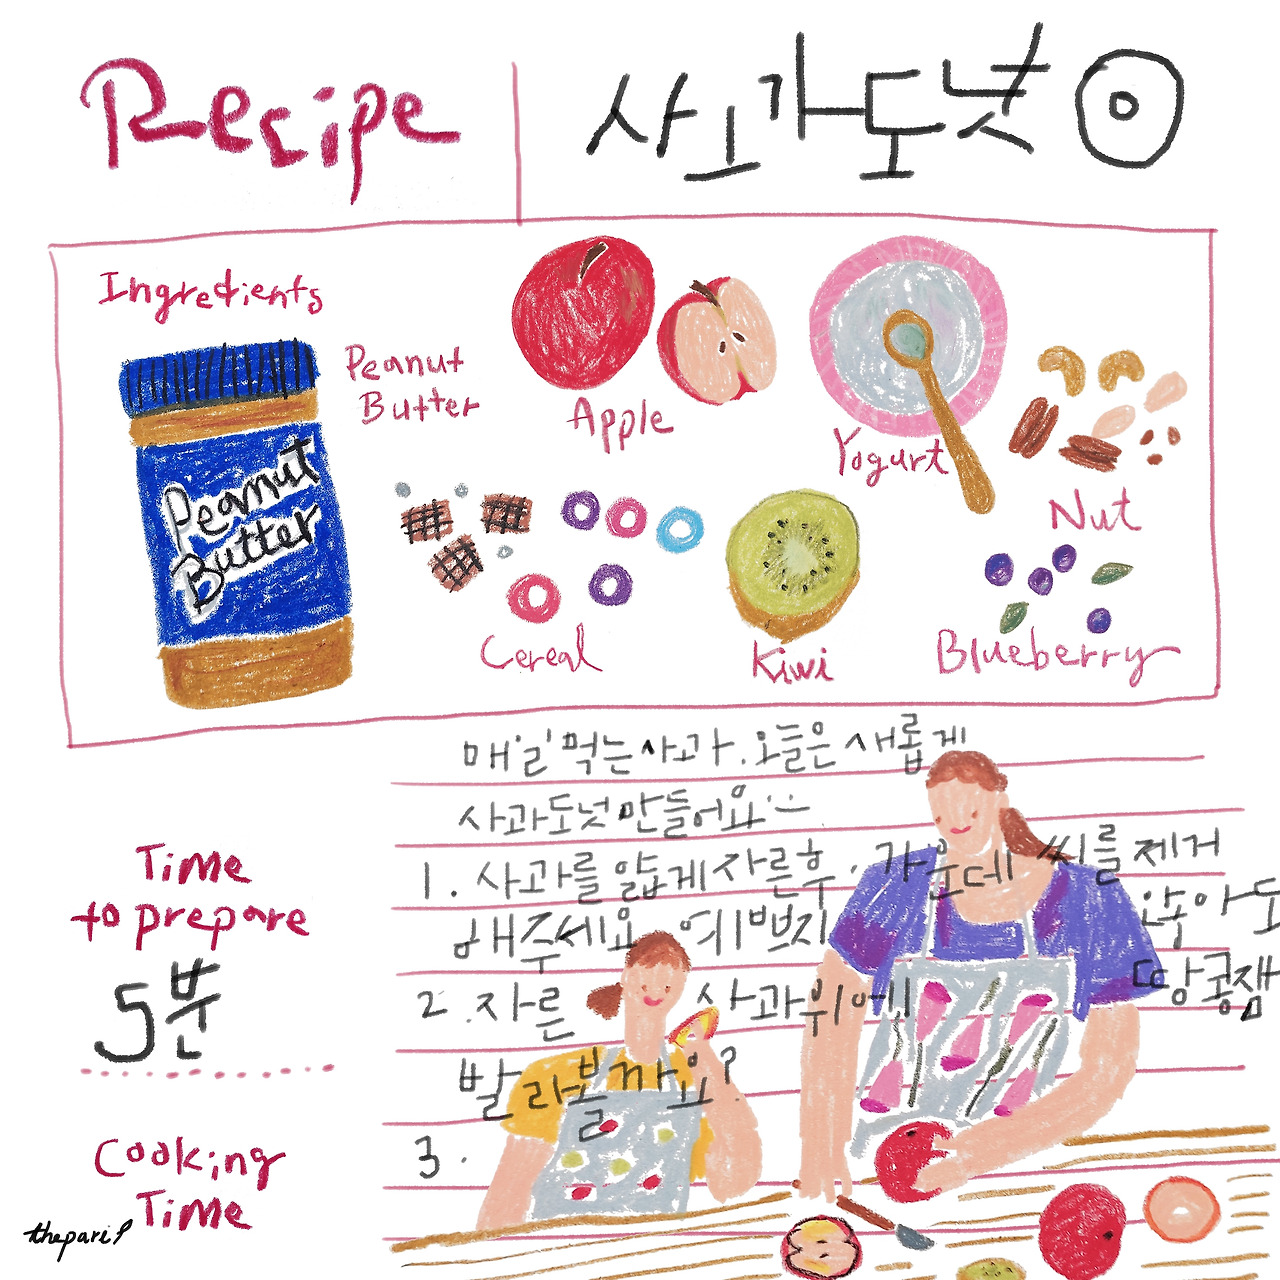 Recipe
사과도넛
Ingredients
Peanut
Butter
Apple
Yogurt
Nut
Peanut
Butter
Cereal
Kiwi
Blueberry
매일 먹는 사과. 오늘은 새롭게
사과도넛 만들어요
Time
to prepare
5분
1. 사과를 얇게 자른후, 가운데 씨를 제거
해주세요 예쁘지 않아도
2. 자른 사과위에 땅콩잼
발라볼까요?
3.
Cooking
Time
theparil